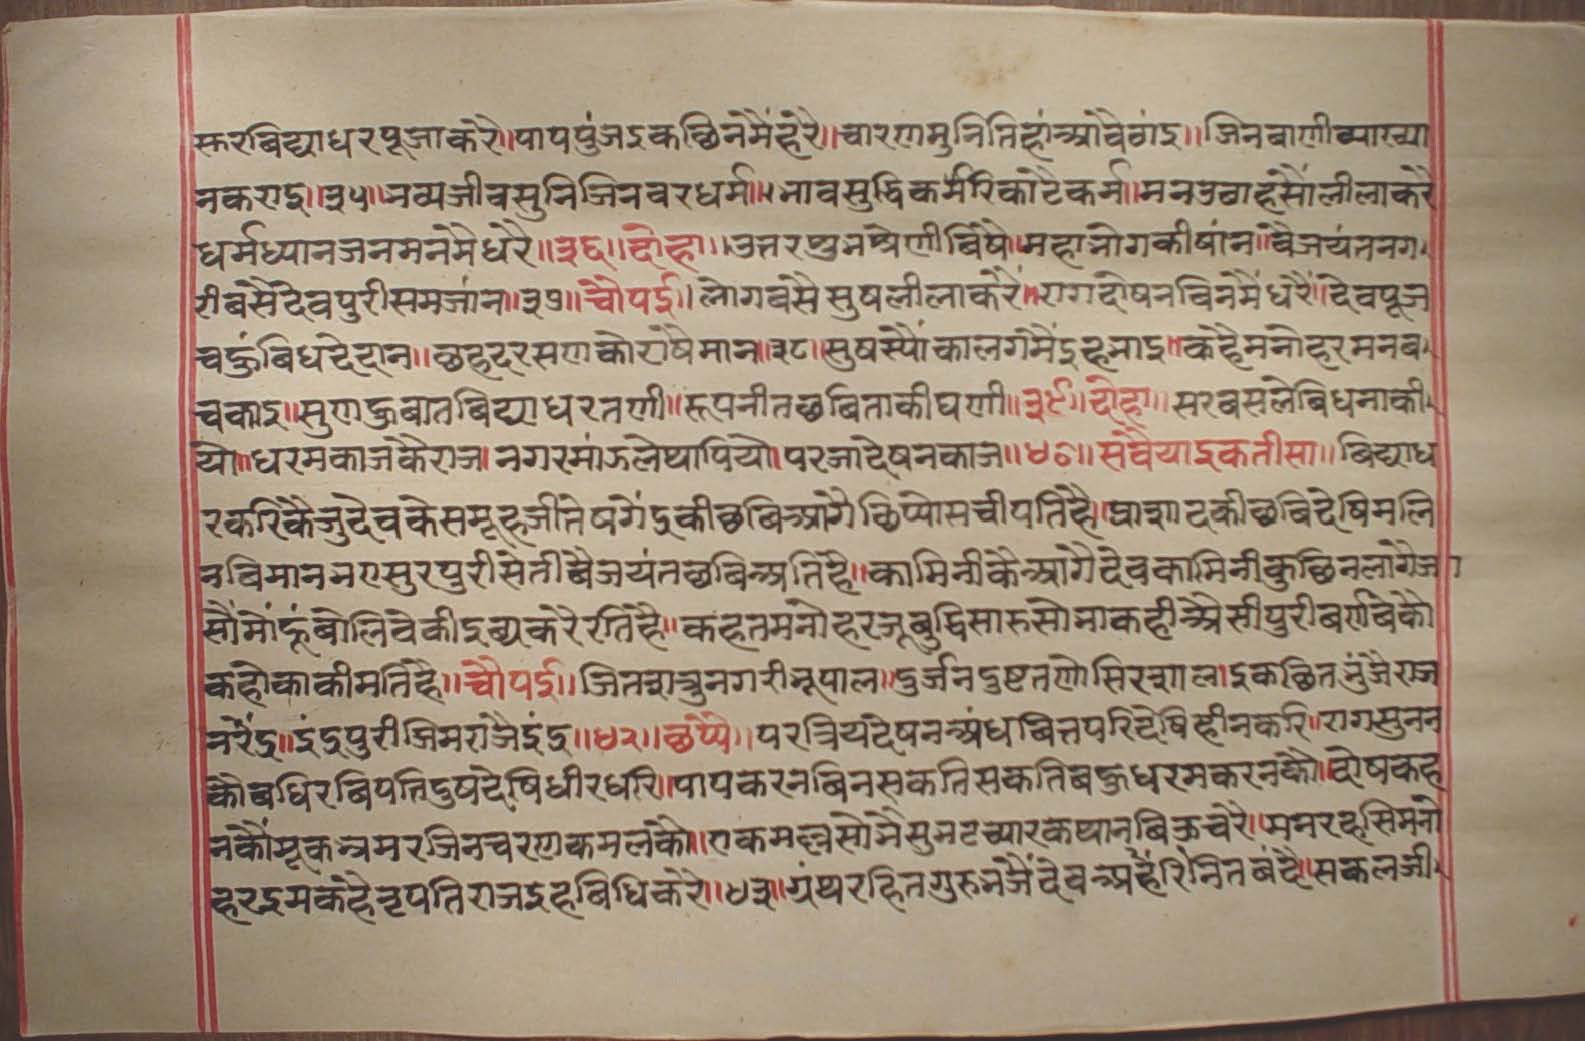 स्करबिद्याधरपूजाकरै॥पापपुंजइकछिनमैंहरै॥चारणमुनितिहांआवैठांइ॥जिनबाणीव्याख्या
नकराइ॥३५॥भव्यजीवसुनिजिनवरधर्म॥भावसुद्धिकर्मरिकाटैकर्म॥मनउछाहसौंलीलाकरै
धर्मध्यानजनमनमैधरै॥३६॥दोहा॥उत्तरपुनश्रेणीबिषै॥महाभोगकीषांन॥वैजयंतनग
रीबसैदेवपुरीसमजांन॥३७॥चौपई॥लोगबसैसुषलीलाकरैं॥रागदोषनबिनमैंधरैं॥देवपूज
चहुंबिधदेदान॥छहदरसणकोराषैमान॥३८॥सुषस्यौंकालगमैंइहभाइ॥कहैमनोहरमनब
चकाइ॥सुणहुबातबिद्याधरतणी॥रूपनीतछबिताकीघणी॥३९॥दोहा॥सरबसलेबिधनाकी
यो॥धरमकाजकैराज॥नगरमांऊलेथापियो॥परजादेषनकाज॥४०॥सवैयाइकतीसा॥बिद्याध
रकरिकैजुदेवकेसमूहजीतेषगेंदुकीछबिआगैछिप्योसचीपतिहै॥प्राशादकीछबिदेषिमलि
नबिमानभएसुरपुरीसेतीबैजयंतछबिअतिहै॥कामिनीकैआगैदेवकामिनीकुछिनलागैज
सौंमोंहूंबोलिवेकीइब्यकरेरतिहै॥कहतमनोहरजूबुद्धिसारुसोभाकहीऐसीपुरीबर्णबेकौ
कहोकाकीमतिहै॥चौपई॥जितशत्रुनगरीभूपाल॥दुर्जनदुष्टतणेसिरशाल॥इकछितभुंजैराज
नरेंदु॥इंदुपुरीजिमराजैइंदु॥४२॥छप्पै॥परत्रियदेषनअंधबित्तपरिदेषिहीनकरि॥रागसुनन
कौबधिरबिपतिदुषदेषिधीरधरि॥पापकरनबिनसकतिसकतिबहुधरमकरनकौ॥दोषकह
नकौंमूकभ्रमरजिनचरणकमलकौ॥एकमहूसोभैसुभटच्यारकथानबिऊचरै॥मनरहसिमनो
हरइमकहैनृपतिराजइहबिधिकरै॥४३॥ग्रंथरहितगुरुनजैंदेवअर्हैरिनितबंदै॥सकलजी